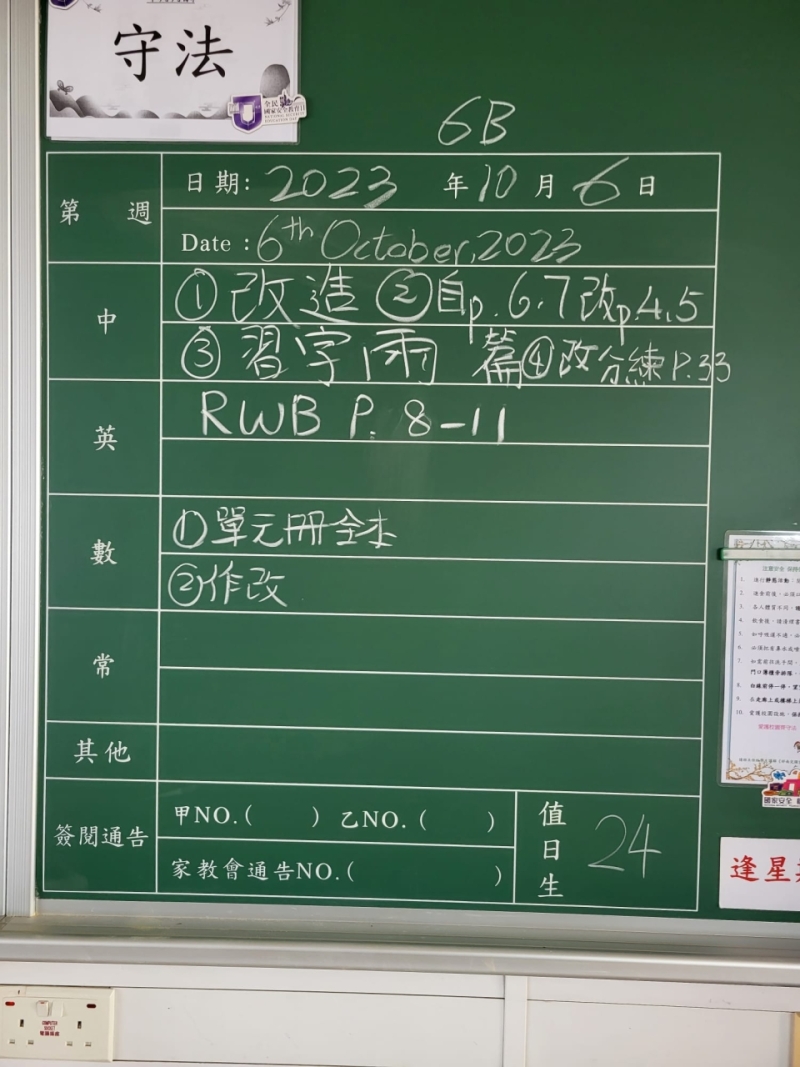 守法
全民
國家安全教育日
NATIONAL SECURITY
EDUCATION DAY
6B
第 週
日期: 2023 年 10 月 6 日
Date : 6th October, 2023
中
① 改造 ② 自p.6.7改p.4.5
③ 習字兩篇④改分練P.33
英
RWB P. 8-11
數
①單元冊全本
②作改
常
其他
簽閱通告
甲NO.( ) 乙NO.( )
家教會通告NO.( )
值日生
24
國家安全
逢星
COMPUTER